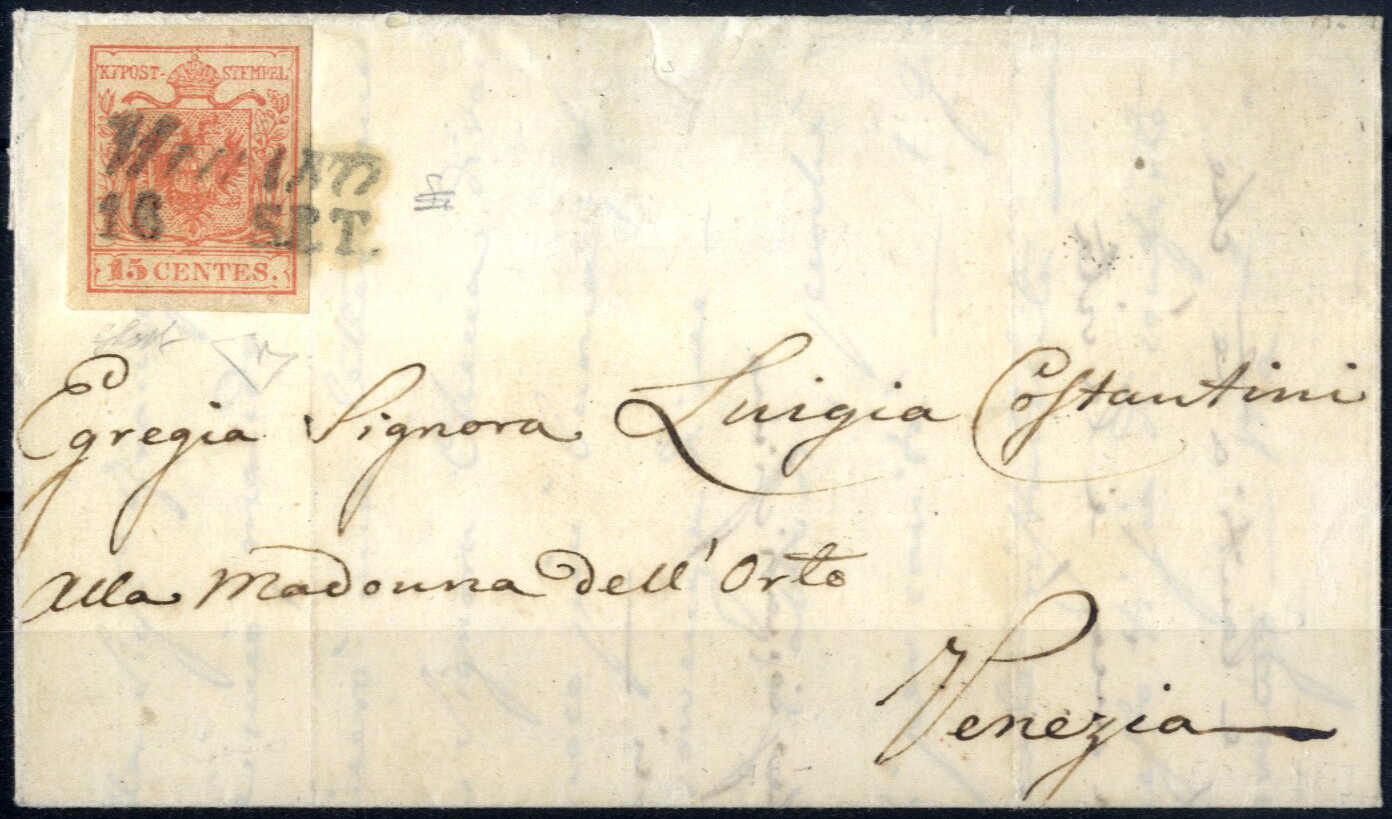 KKPOST-STEMPEL
16 SET.
15 CENTES.
Egregia Signora Luigia Costantini
Alla Madonna dell' Orto
Venezia